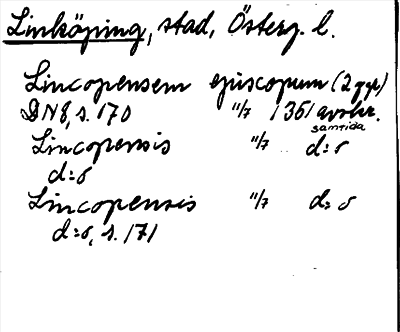 Linköping, stad, Österg. l.
Lincopensem episcopum (2 ggr)
DN 8, s. 170 11/7 1361 avskr.
samtida
Lincopensis 11/7 d:o
d:o
Lincopensis 11/7 d:o
d:o, s. 171